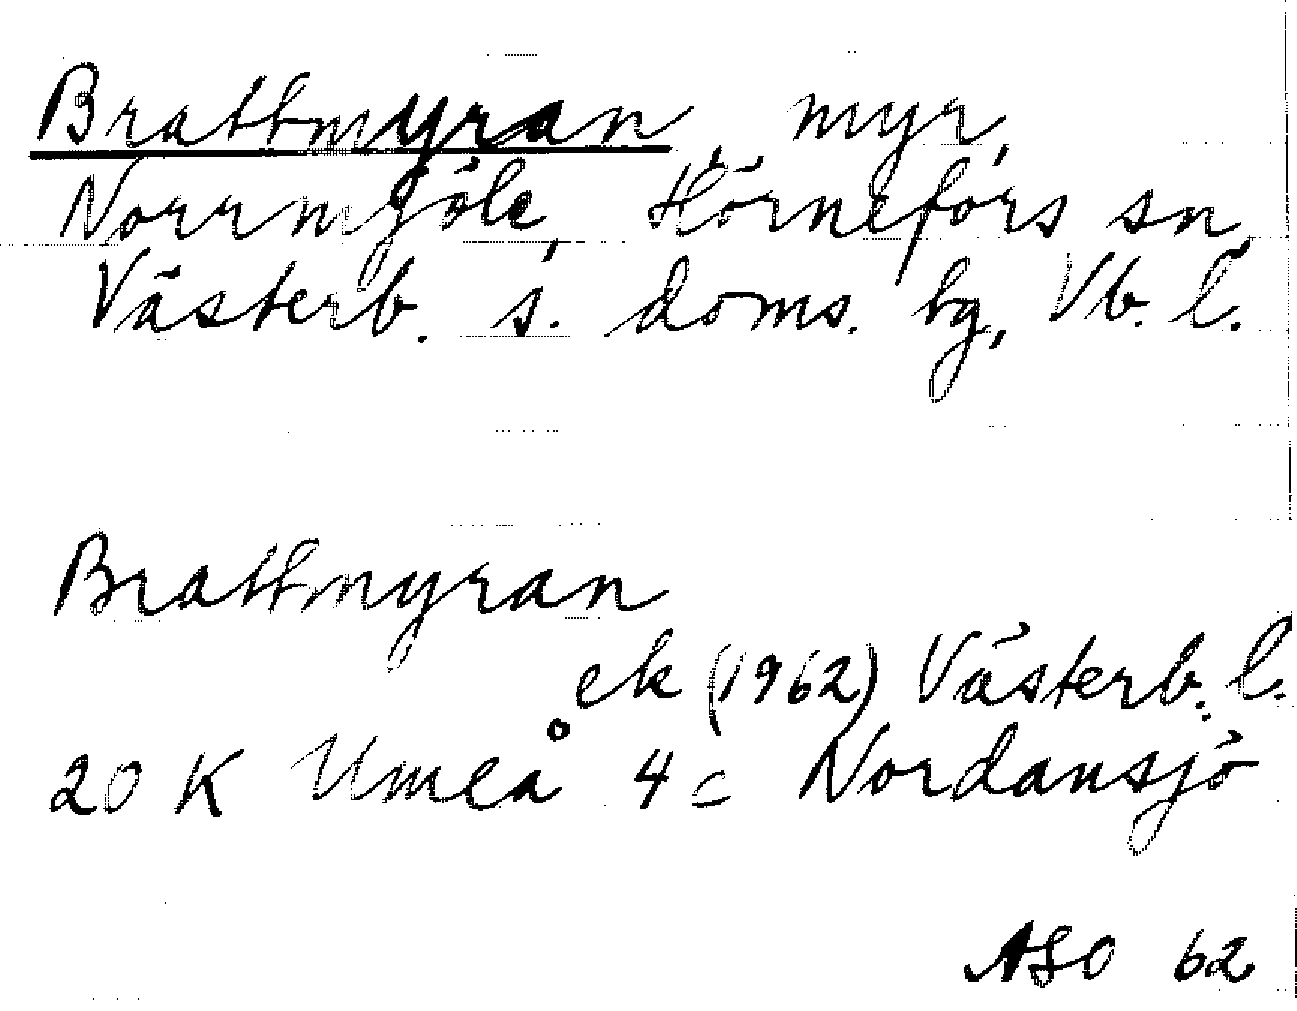 Brattmyran, myr,
Norrmjöle, Hörnefors sn,
Västerb. s. doms. bg, Vb. l.
Brattmyran
ek (1962) Västerb. l.
20 K Umeå 4 c Nordansjö
ASO 62